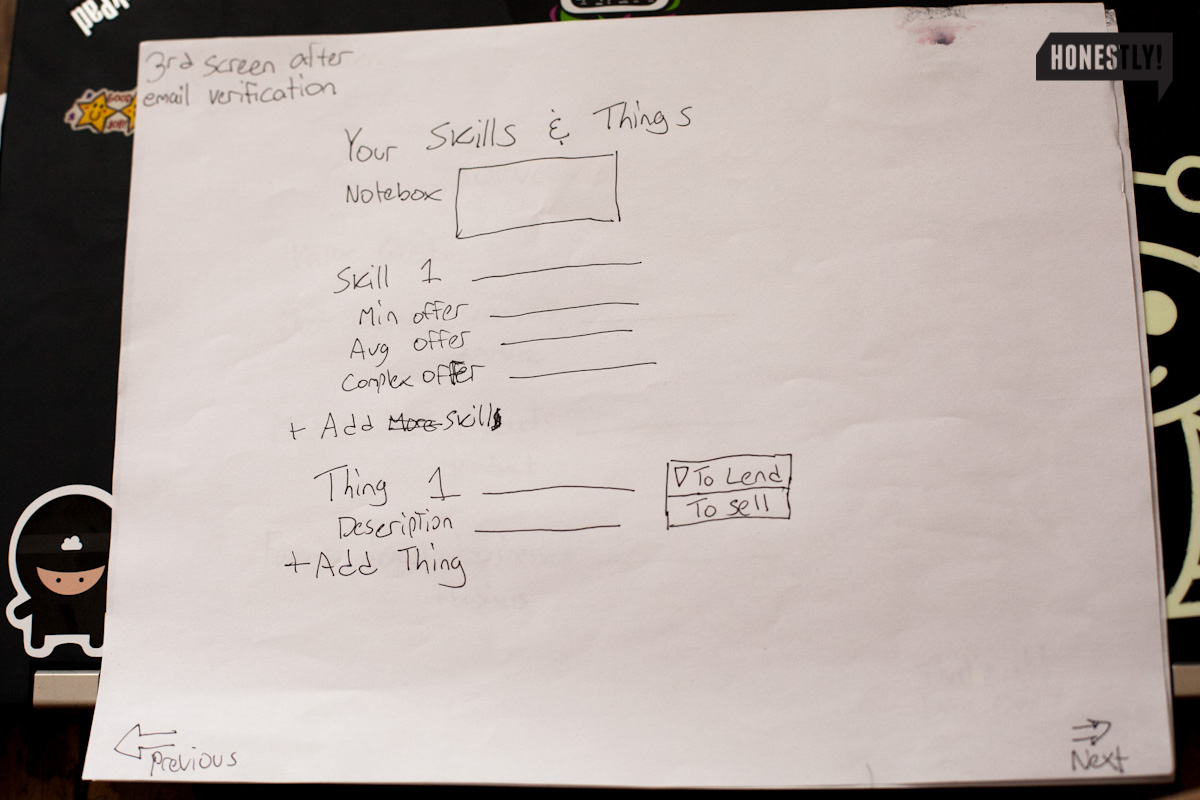 kPad
HONESTLY!
3rd screen after
email verification
Your Skills & Things
Notebox
Skill 1
Min offer
Avg offer
Complex offer
+ Add More skills
Thing 1
▽ To Lend
To sell
Description
+ Add Thing
Previous
Next